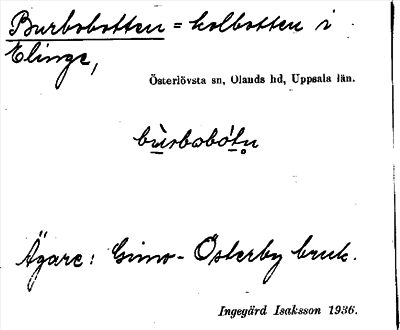 Burbobotten = kolbotten i
Elinge,
Österlövsta sn, Olands hd, Uppsala län.
bùrbobót̥n
Ägare: Gimo-Österby bruk.
Ingegärd Isaksson 1936.